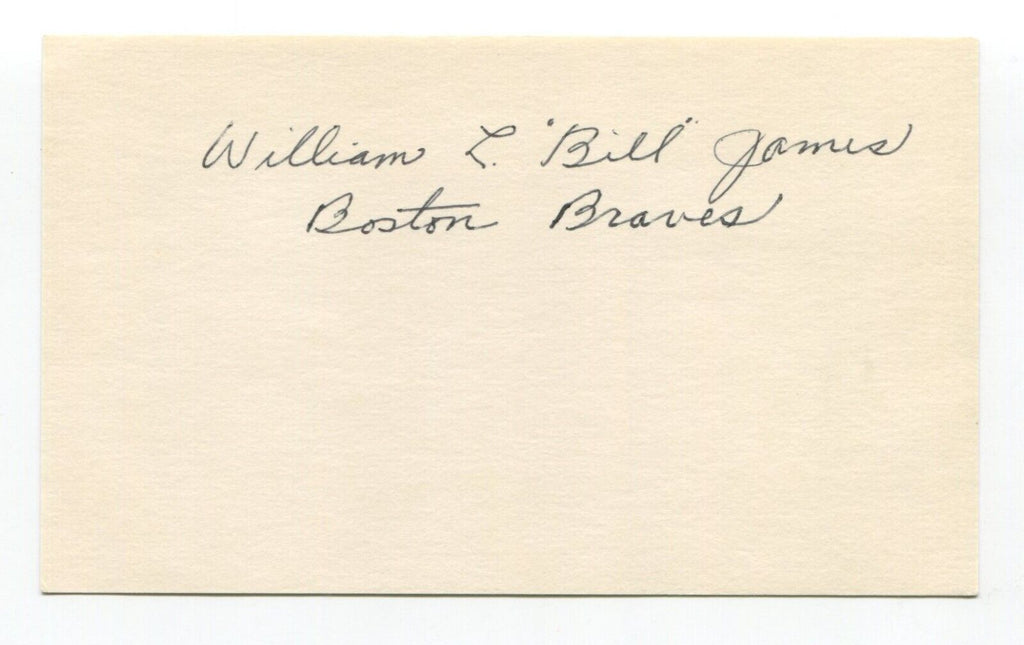 William L. "Bill" James
Boston Braves